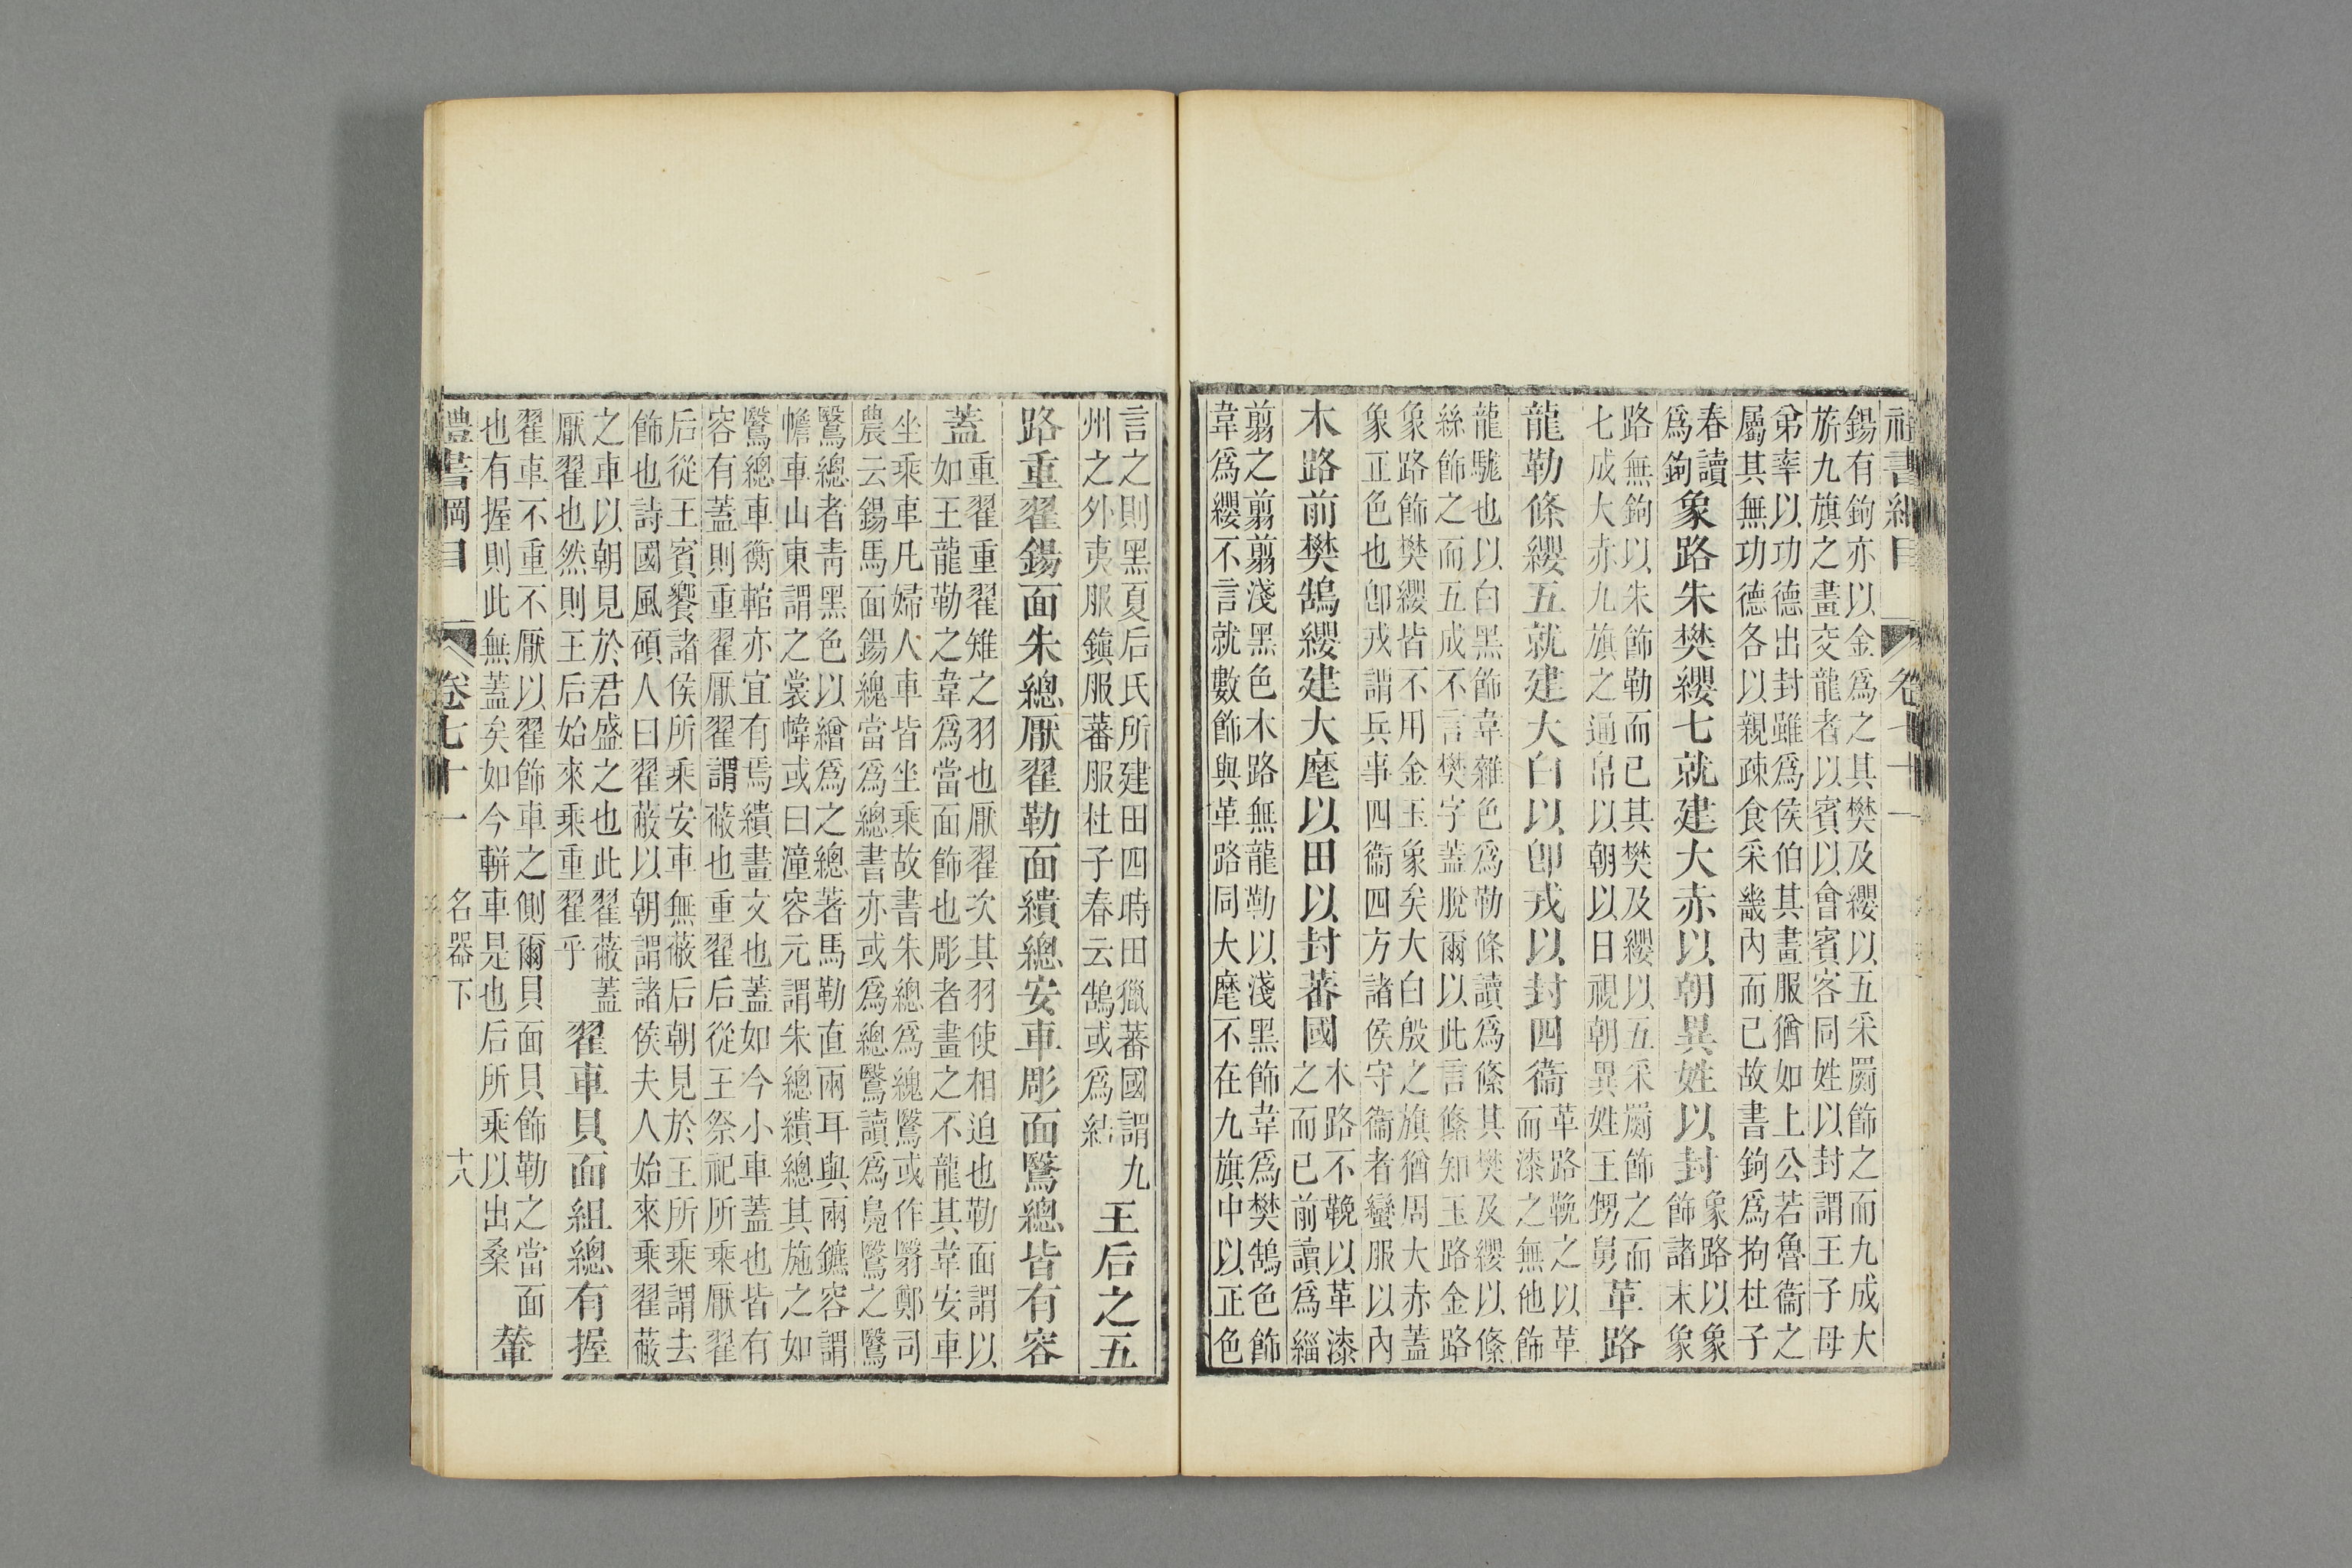 禮書綱目 卷七十一
錫有鉤亦以金爲之其樊及纓以五采罽飾之而九成大
旂九旗之畫交龍者以賓以會賓客同姓以封謂王子母
弟率以功德出封雖爲侯伯其畫服猶如上公若魯衞之
屬其無功德各以親疎食采畿內而已故書鉤爲拘杜子
春讀
爲鉤
象路朱樊纓七就建大赤以朝異姓以封
象路以象
飾諸末象
路無鉤以朱飾勒而已其樊及纓以五采罽飾之而
七成大赤九旗之通帛以朝以日視朝異姓王甥舅
革路
龍勒條纓五就建大白以卽戎以封四衞
革路鞔之以革
而漆之無他飾
龍駹也以白黑飾韋雜色爲勒條讀爲絛其樊及纓以絛
絲飾之而五成不言樊字蓋脫爾以此言絛知玉路金路
象路飾樊纓皆不用金玉象矣大白殷之旗猶周大赤蓋
象正色也卽戎謂兵事四衞四方諸侯守衞者蠻服以內
木路前樊鵠纓建大麾以田以封蕃國
木路不鞔以革漆
之而已前讀爲緇
翦之翦翦淺黑色木路無龍勒以淺黑飾韋爲樊鵠色飾
韋爲纓不言就數飾與革路同大麾不在九旗中以正色
言之則黑夏后氏所建田四時田獵蕃國謂九
州之外夷服鎭服蕃服杜子春云鵠或爲結
王后之五
路重翟錫面朱總厭翟勒面繢總安車彫面鷖總皆有容
蓋
重翟重翟雉之羽也厭翟次其羽使相迫也勒面謂以
如王龍勒之韋爲當面飾也彫者畫之不龍其韋安車
坐乘車凡婦人車皆坐乘故書朱總爲繱鷖或作繄鄭司
農云錫馬面錫繱當爲總書亦或爲總鷖讀爲鳧鷖之鷖
鷖總者靑黑色以繒爲之總著馬勒直兩耳與兩鑣容謂
幨車山東謂之裳幃或曰潼容元謂朱總繢總其施之如
鷖總車衡輨亦宜有焉繢畫文也蓋如今小車蓋也皆有
容有蓋則重翟厭翟謂蔽也重翟后從王祭祀所乘厭翟
后從王賓饗諸侯所乘安車無蔽后朝見於王所乘謂去
飾也詩國風碩人曰翟蔽以朝謂諸侯夫人始來乘翟蔽
之車以朝見於君盛之也此翟蔽蓋
厭翟也然則王后始來乘重翟乎
翟車貝面組總有握
翟車不重不厭以翟飾車之側爾貝面貝飾勒之當面
也有握則此無蓋矣如今軿車是也后所乘以出桑
輦
禮書綱目 卷七十一 名器下 十八